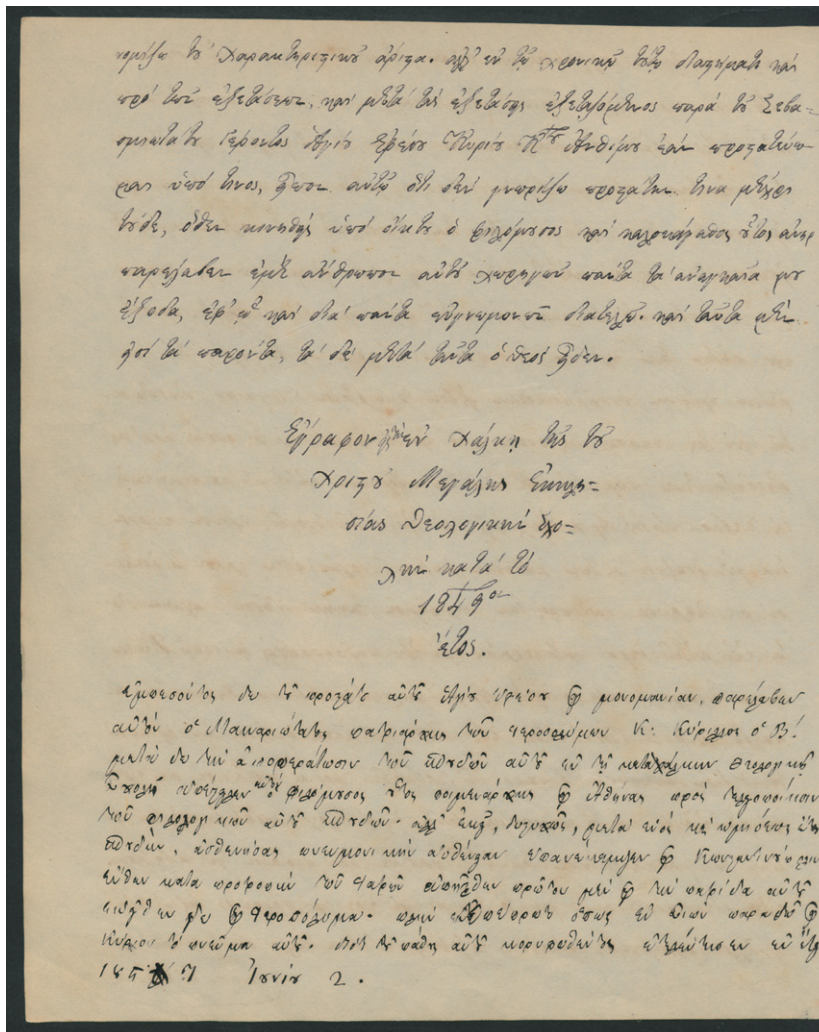 νομίζω τοῦ χαρακτηριστικοῦ ἄριστα. ἀλλ' ἐν τῷ χρονικῷ τούτῳ διαστήματι καὶ
πρὸ τῶν ἐξετάσεων, καὶ μετὰ τὰς ἐξετάσεις ἐξεταζόμενος παρὰ τοῦ Σεβα-
σμιωτάτου Γέροντος Ἁγίου Ἐφέσου Κυρίου Κου Ἀνθίμου ἐὰν προστατεύω-
μαι ὑπό τινος, εἶπον αὐτῷ ὅτι δὲν γνωρίζω προστάτην τινα μέχρι
τοῦδε, ὅθεν κινηθεὶς ὑπὸ οἴκτου ὁ φιλόμουσος καὶ καλοκἄγαθος οὗτος ἀνὴρ
παρέλαβεν ἐμὲ ἄνθρωπον αὐτοῦ χορηγῶν πάντα τὰ ἀναγκαῖα μου
ἔξοδα, ἐφ' ᾧ καὶ διὰ παντὸς εὐγνωμονῶν διατελῶ. καὶ ταῦτα μὲν
εἰσὶ τὰ παρόντα, τὰ δὲ μετὰ ταῦτα ὁ θεὸς οἶδεν.
Ἔγραφον ἐν Χάλκῃ τῆς τοῦ
Χριστοῦ Μεγάλης Ἐκκλη=
σίας Θεολογικῇ Σχο=
λῇ κατὰ τὸ
1849ον
ἔτος.
ἐμπεσόντος δὲ τοῦ προστάτου αὐτοῦ Ἁγίου Ἐφέσου εἰς μονομανίαν, παρέλαβεν
αὐτὸν ὁ Μακαριώτατος πατριάρχης τῶν Ἱεροσολύμων Κ. Κύριλλος ὁ Β!
μετὰ δὲ τὴν ἀποπεράτωσιν τῶν σπουδῶν αὐτοῦ ἐν τῇ κατὰ Χάλκην Θεολογικῇ
Σχολῇ ἀπέστειλεν αὐτὸν ὁ φιλόμουσος οὗτος ποιμενάρχης εἰς Ἀθήνας πρὸς τελειοποίησιν
τῶν φιλολογικῶν αὐτοῦ σπουδῶν. ἀλλ' ἐκεῖ, δυστυχῶς, μετὰ ἑνὸς καὶ ἡμίσεως ἔτους
σπουδὴν, ἀσθενήσας πνευμονικὴν ἀσθένειαν ἐπανέκαμψεν εἰς Κωνσταντινούπολιν
εἶθεν κατὰ προτροπὴν τῶν ἰατρῶν ἀπῆλθεν πρῶτον μὲν εἰς τὴν πατρίδα αὐτοῦ
δὲ εἰς Ἱεροσόλυμα. πλὴν ὅπως ἐν Σιὼν παραδῷ εἰς
Κύριον τὸ πνεῦμα αὐτοῦ. τοῦ πάθους αὐτοῦ κορυφωθέντος ἐτελεύτησεν ἐν ἔτει
Ἰουνίου 2.